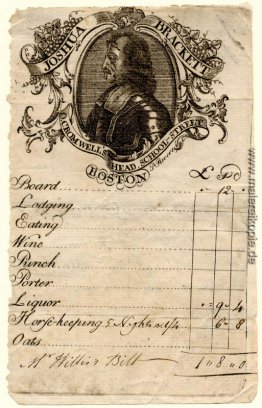 JOSHUA BRACKETT
O. CROMWELL'S HEAD SCHOOL STREET
BOSTON
£ S d
Board 12
Lodging
Eating
Wine
Punch
Porter
Liquor 9 4
Horse-keeping 5 Nights 6 8
Oats
Mr Bill 1 8 0
www.malereikopie.de